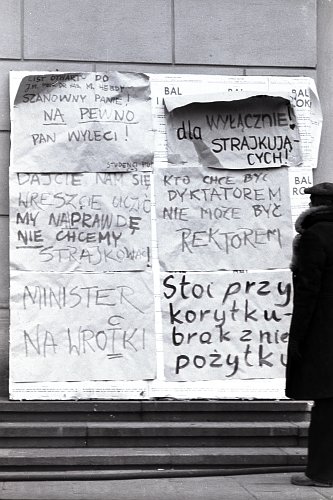 LIST OTWARTY DO
SZANOWNY PANIE!
NA PEWNO
PAN WYLECI!
STUDENCI
DAJCIE NAM SIĘ
WRESZCIE UCZYĆ
MY NAPRAWDĘ
NIE CHCEMY
STRAJKOWAĆ
MINISTER
NA WROTKI
C
BAL
BAL
WYŁĄCZNIE!
dla STRAJKUJĄ-
CYCH!
KTO CHCE BYĆ
DYKTATOREM
NIE MOŻE BYĆ
REKTOREM
Stoi przy
korytku-
brak z nie
pożytku
BAL